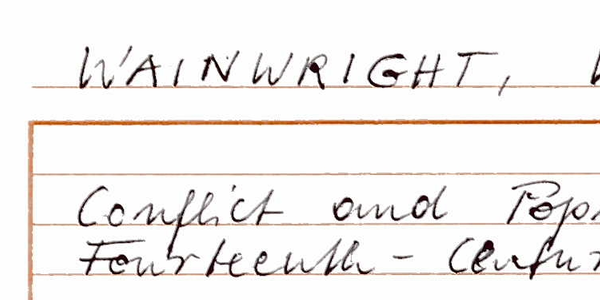 WAINWRIGHT,
Conflict and Pop
Fourteenth-Centur